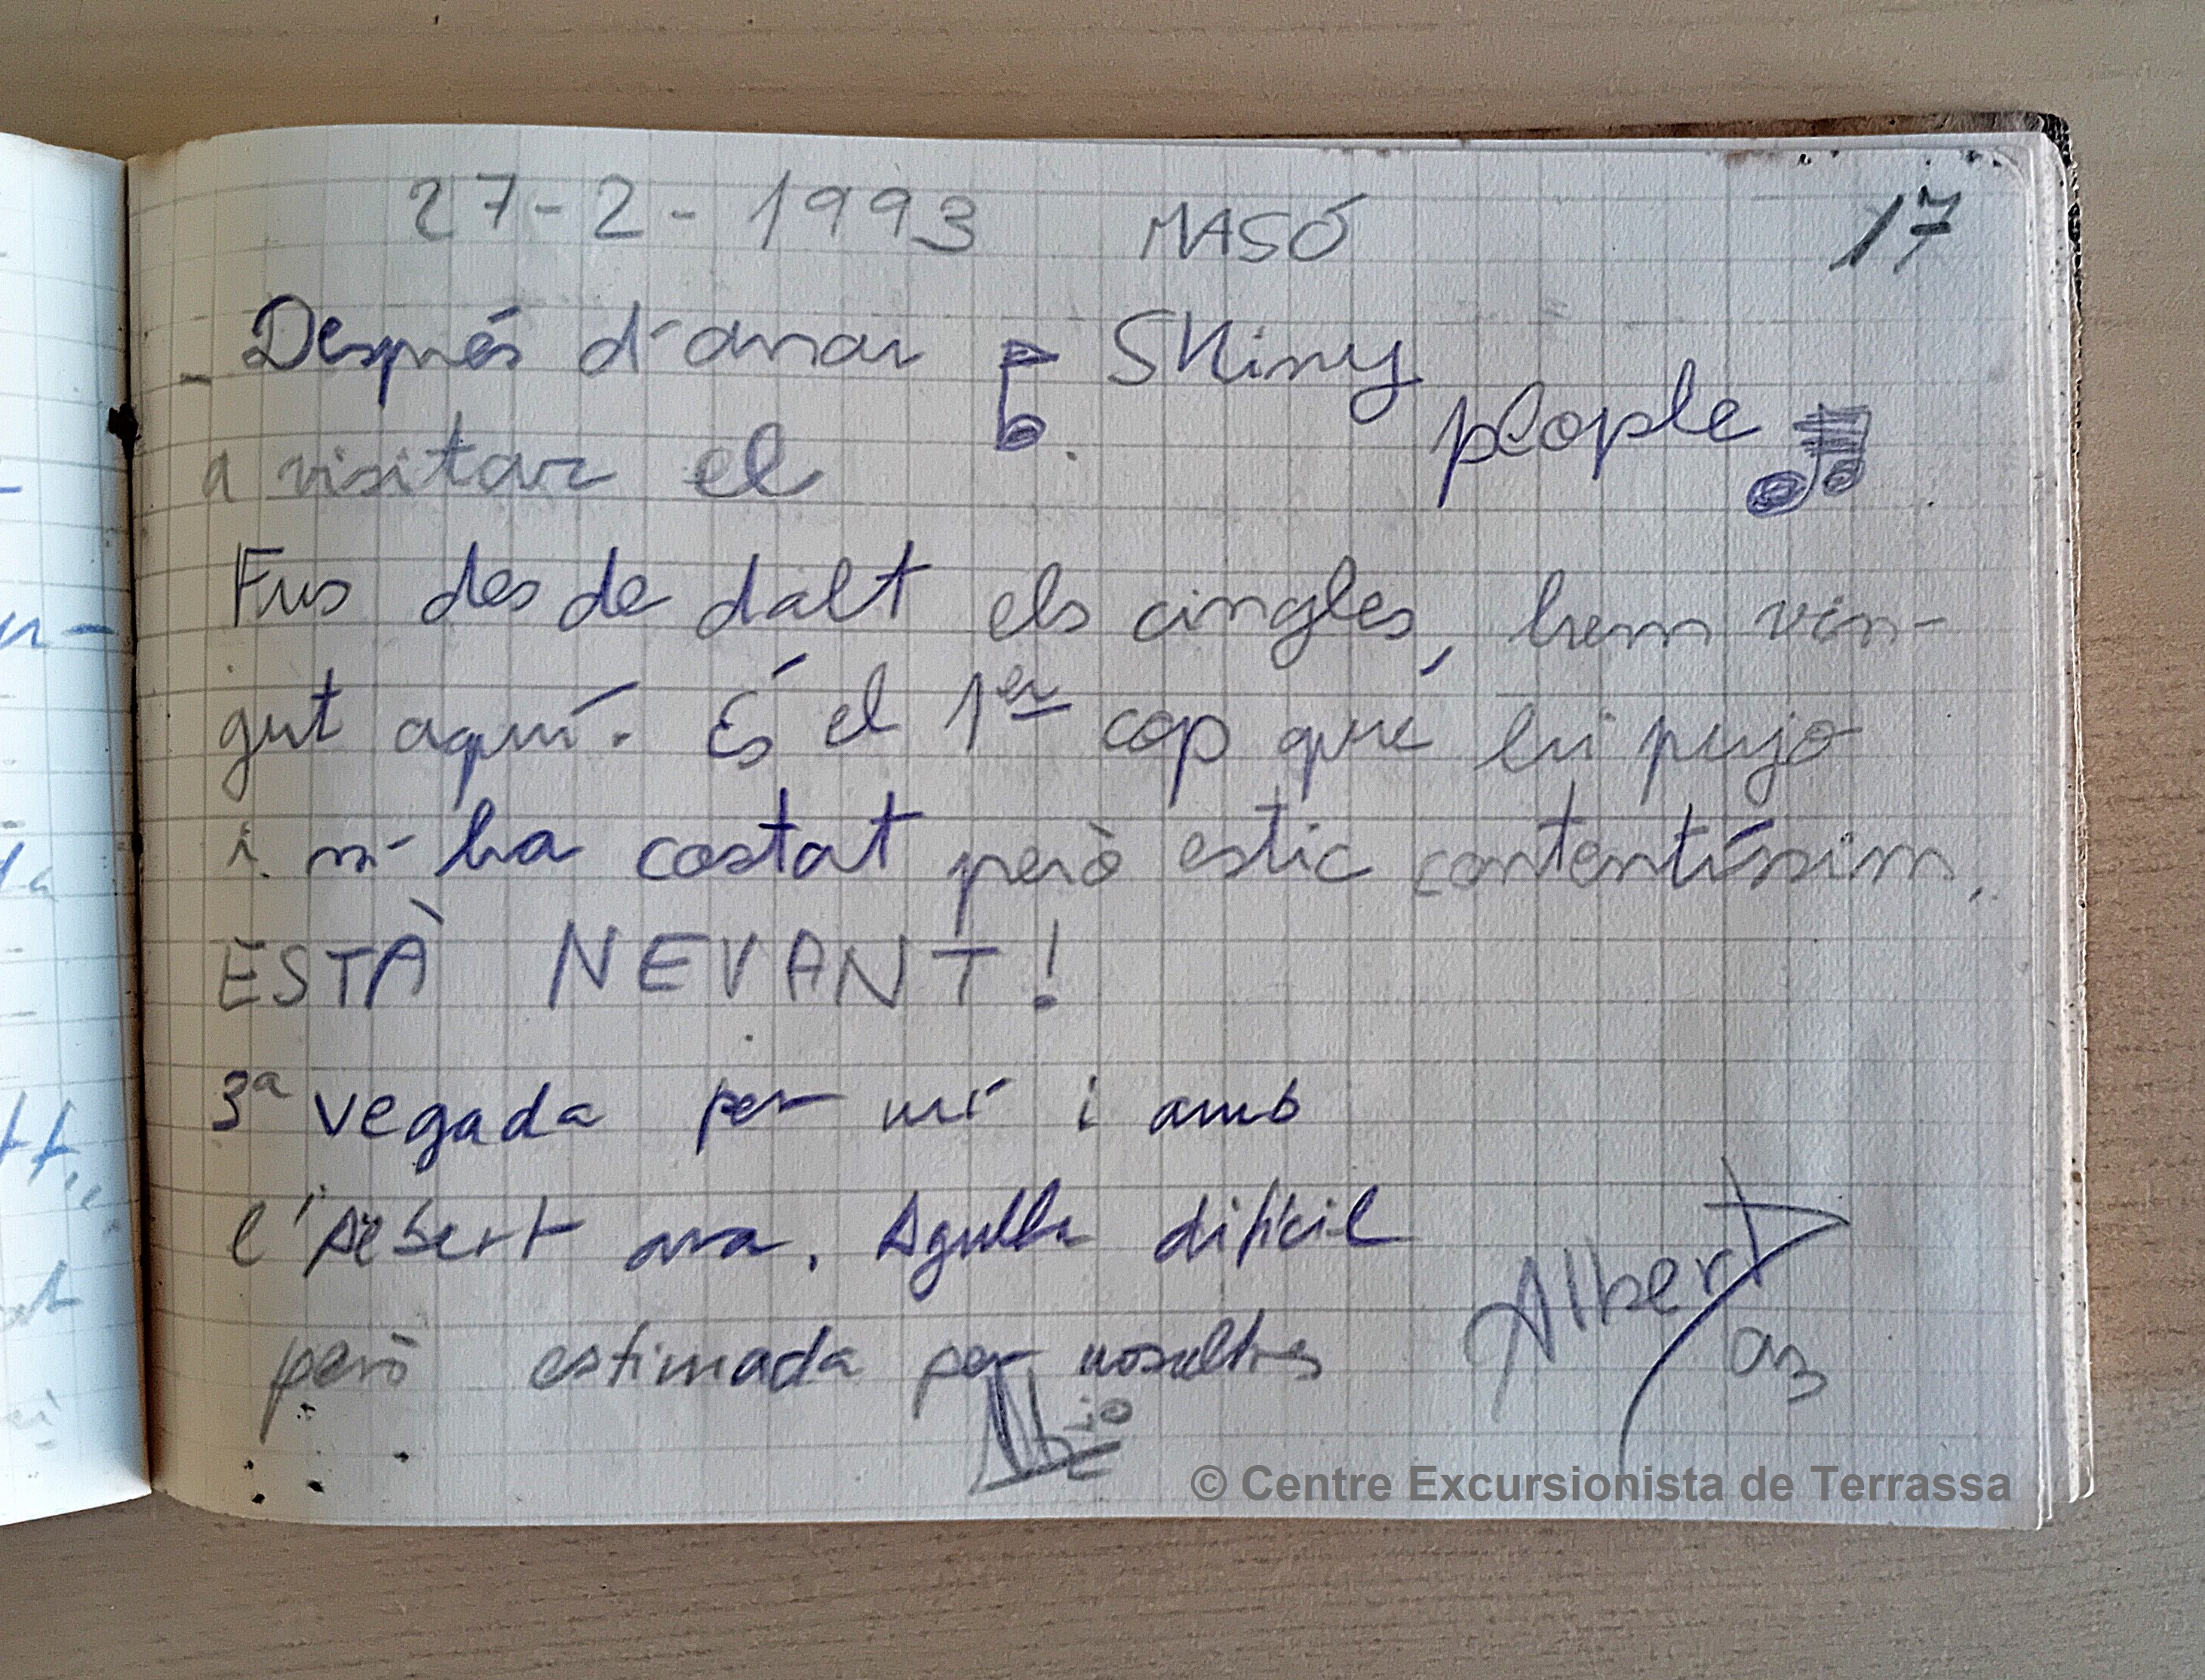 27-2-1993 MASÓ 17
- Després d'anar Shiny people
a visitar el
Fus des de dalt els cingles, hem vin-
gut aquí. És el 1er cop que hi pujo
i m'ha costat però estic contentíssim.
ESTÀ NEVANT!
3ª vegada per mí i amb
l'Albert ara. Agulla difícil
però estimada per nosaltres
Albert
93
© Centre Excursionista de Terrassa